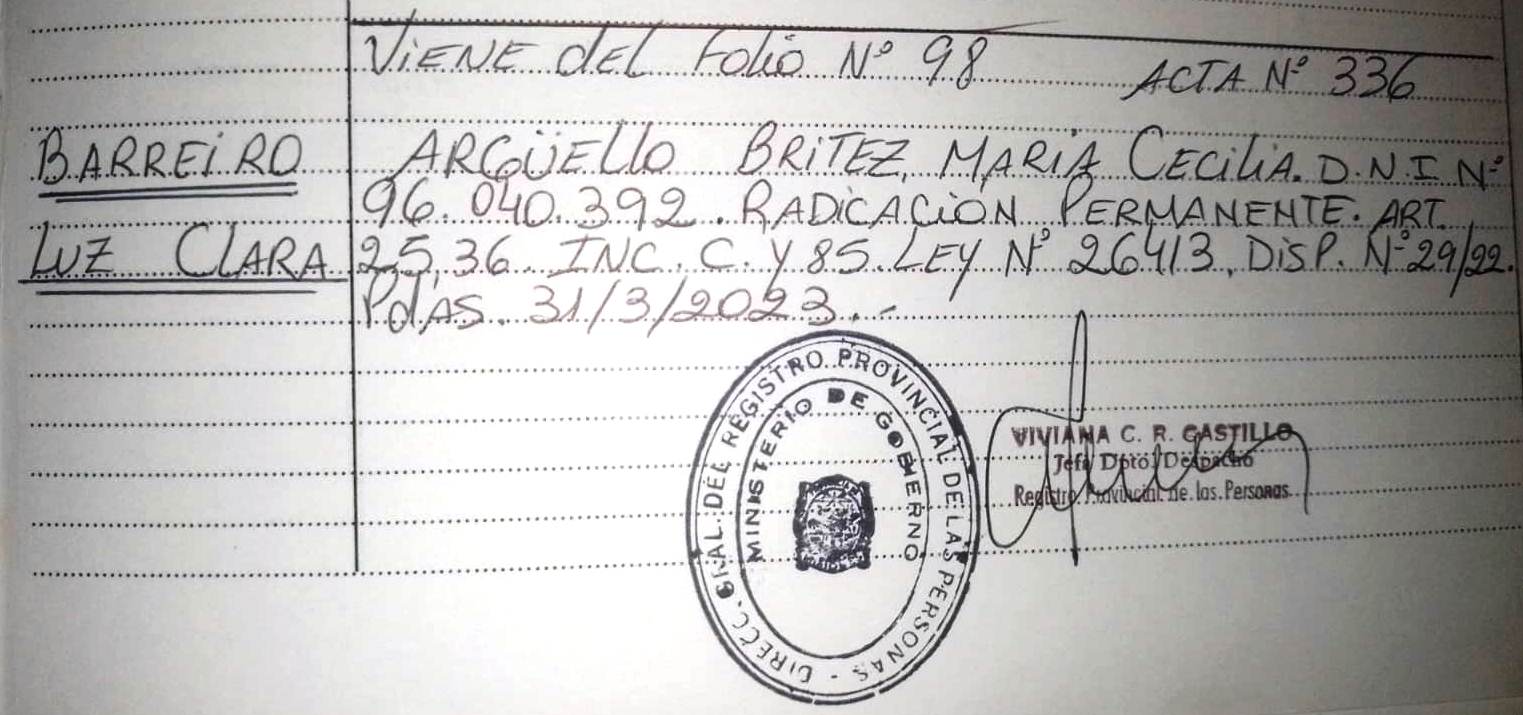 VIENE del Folio Nº 98 ACTA Nº 336
BARREIRO ARGÜELLO BRITEZ, MARÍA CECILIA. D.N.I Nº
96.040.392. RADICACIÓN PERMANENTE. ART.
LUZ CLARA 25, 36. INC. C. Y 85. LEY Nº 26413, DISP. Nº 29/22.
PdAS. 31/3/2023.-
DIRECC. GRAL. DEL REGISTRO PROVINCIAL DE LAS PERSONAS -
MINISTERIO DE GOBIERNO
VIVIANA C. R. CASTILLO
Jefa Dpto. Despacho
Registro Provincial de las Personas